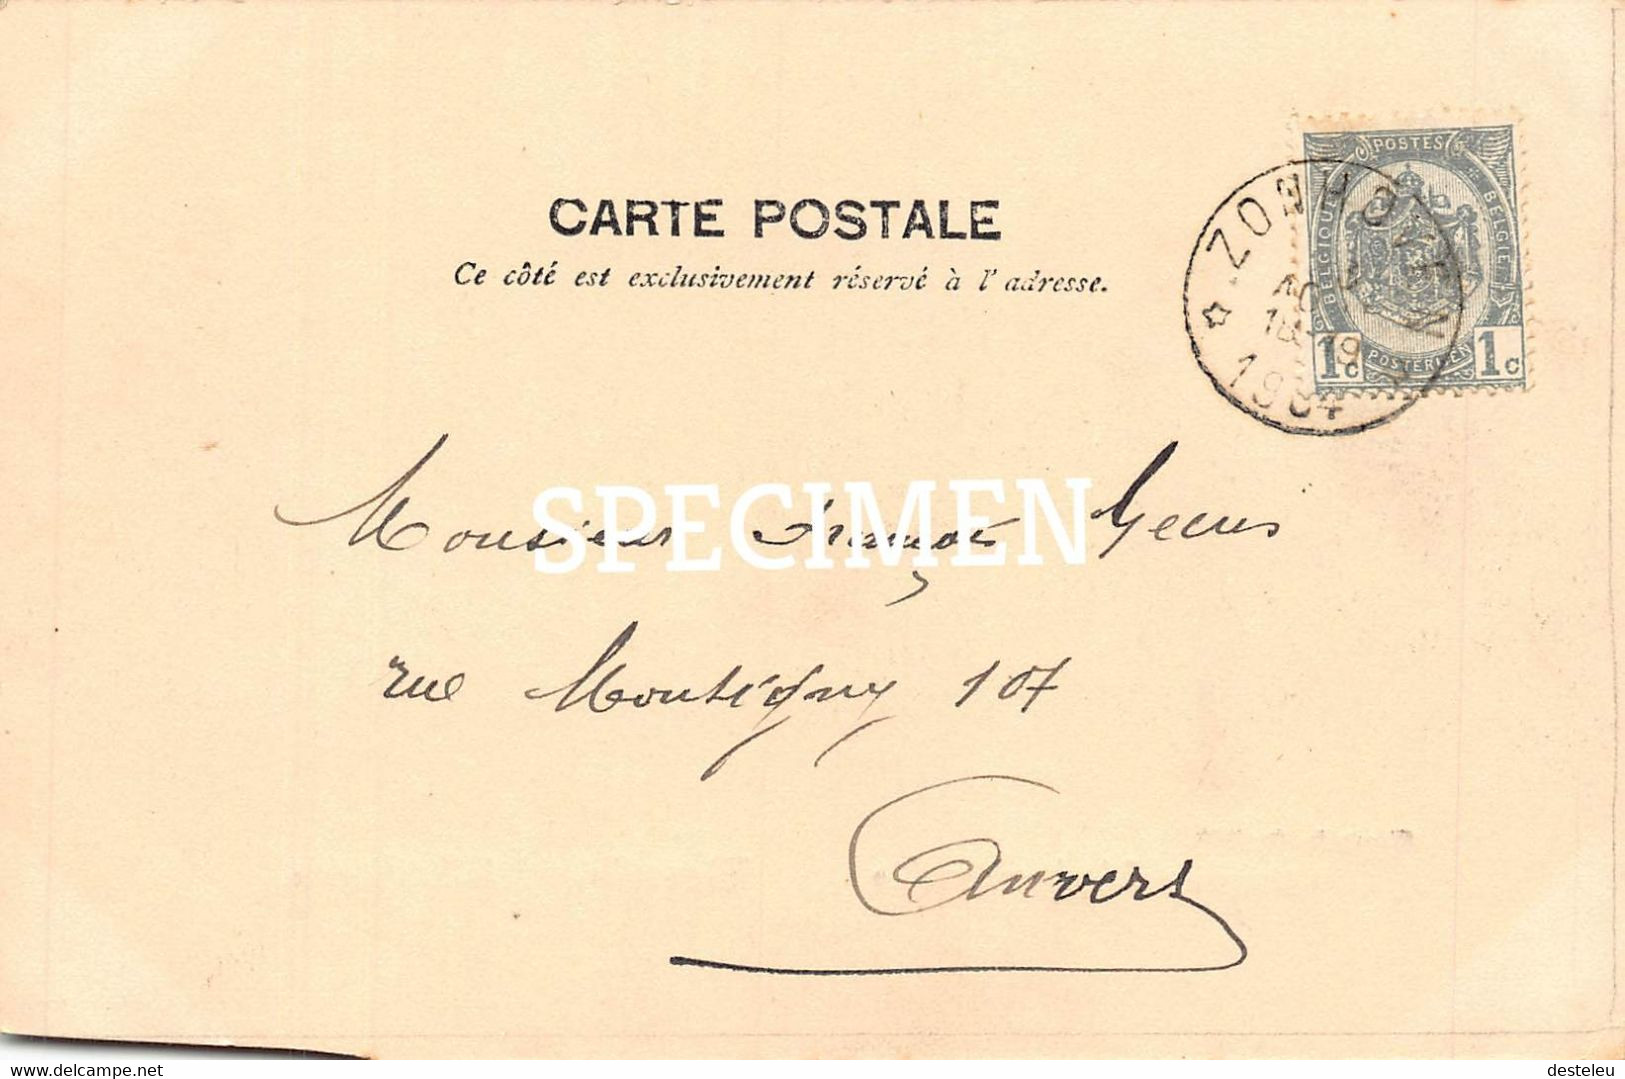 POSTES
BELGIQUE BELGIË
CARTE POSTALE
ZONHOVEN
Ce côté est exclusivement réservé à l'adresse.
18-19
1904
1c POSTERIJEN 1c
SPECIMEN
Monsieur François Geens
rue Montigny 107
Anvers
delcampe.net
desteleu